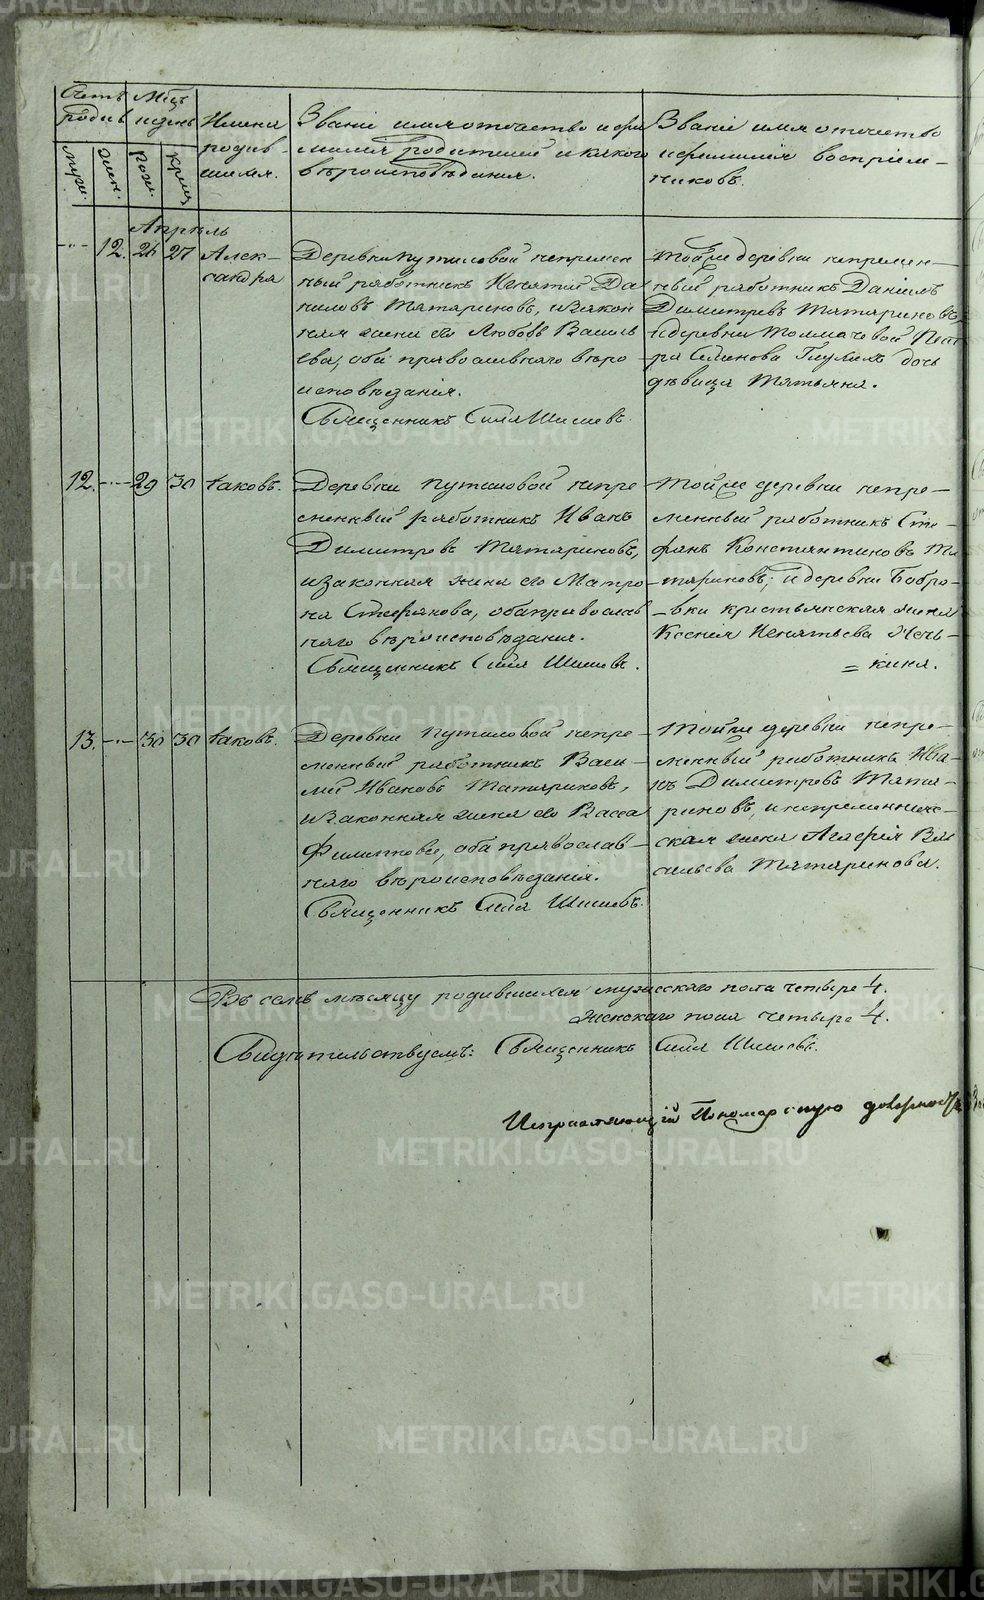 Счетъ родив
Мѣсц и день
Имена родив-шихся.
Званіе имя отчество и фа
милія родителей и какого
вѣроисповѣданія.
Званіе имя отчество
и фамилія воспріем-
никовъ.
муж. жен. рожд. крещ
Апрѣль
12. 26 27 Алек-
сандра
Деревни Путиловой непремен
ный работникъ Игнатій Да
ниловъ Татариновъ, и закон
ная жена его Любовь Василь
ева, оба православнаго вѣро
исповѣданія.
Священникъ Сила Шишевъ.
Тойже деревни непремен-
ный работникъ Данилъ
Димитревъ Татариновъ
и деревни Толмачевой Пет
ра Семенова дочь
дѣвица Татьяна.
12. 29 30 Іаковъ.
Деревни Путиловой непре
менный работникъ Иванъ
Димитревъ Татариновъ,
и законная жена его Матро
на Стефанова, оба православ
наго вѣроисповѣданія.
Священникъ Сила Шишевъ.
Тойже деревни непре-
менный работникъ Сте-
фанъ Константиновъ Та-
тариновъ; и деревни Бобро-
вки крестьянская жена
Ксенія Игнатьева
кина.
13. 30 30 Іаковъ.
Деревни Путиловой непре-
менный работникъ Васи-
лій Ивановъ Татариновъ,
и законная жена его Васса
Филипова, оба православ-
наго вѣроисповѣданія.
Священникъ Сила Шишевъ.
Тойже деревни непре-
менный работникъ Ива-
нъ Димитревъ Тата-
риновъ, и непременниче-
ская жена Агафія Ва
сильева Татаринова.
Въ семъ мѣсяцѣ родившихся мужескаго пола четыре 4.
женскаго пола четыре 4.
Свидѣтельствуемъ: Священникъ Сила Шишевъ.
Исправляющій Пономарскую должность
METRIKI.GASO-URAL.RU